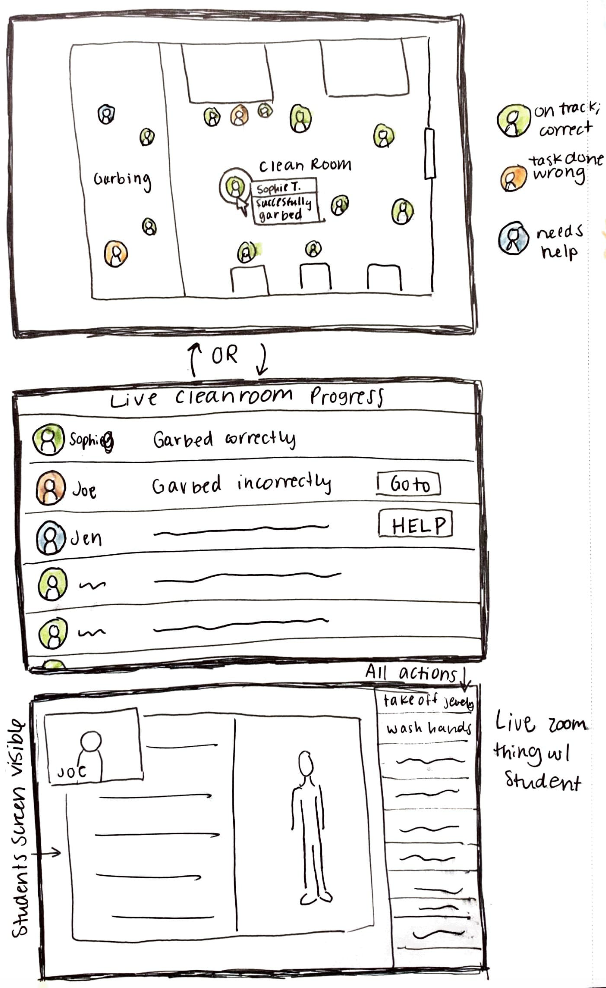 Garbing
Clean Room
Sophie T.
succesfully
garbed
on track;
correct
task done
wrong
needs
help
OR
Live Cleanroom Progress
Sophie
Garbed correctly
Joe
Garbed incorrectly
Go to
Jen
HELP
All actions
take off jewely
wash hands
JOE
Students screen visible
Live zoom
thing w/
Student